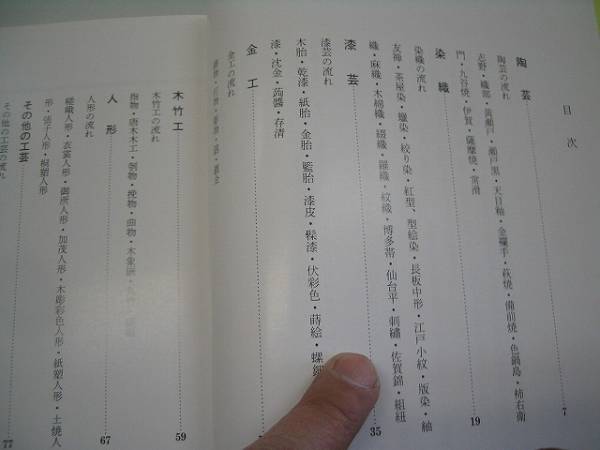 目次
陶芸
陶芸の流れ 7
志野・織部・黄瀬戸・瀬戸黒・天目釉・金襴手・萩焼・備前焼・色鍋島・柿右衛
門・九谷焼・伊賀・薩摩焼・常滑
染織 19
染織の流れ
友禅・茶屋染・臈染・絞り染・紅型、型絵染・長板中形・江戸小紋・版染・紬
織・麻織・木綿織・綴織・羅織・紋織・博多帯・仙台平・刺繡・佐賀錦・組紐
漆芸 35
漆芸の流れ
木胎・乾漆・紙胎・金胎・籃胎・漆皮・髹漆・伏彩色・蒔絵・螺鈿
漆・沈金・蒟醬・存清
金工
金工の流れ
木竹工 59
木竹工の流れ
指物・唐木木工・刳物・挽物・曲物・木象嵌
人形 67
人形の流れ
嵯峨人形・衣裳人形・御所人形・加茂人形・木彫彩色人形・紙塑人形・土焼人
形・張子人形・桐塑人形
その他の工芸 77
その他の工芸の流れ